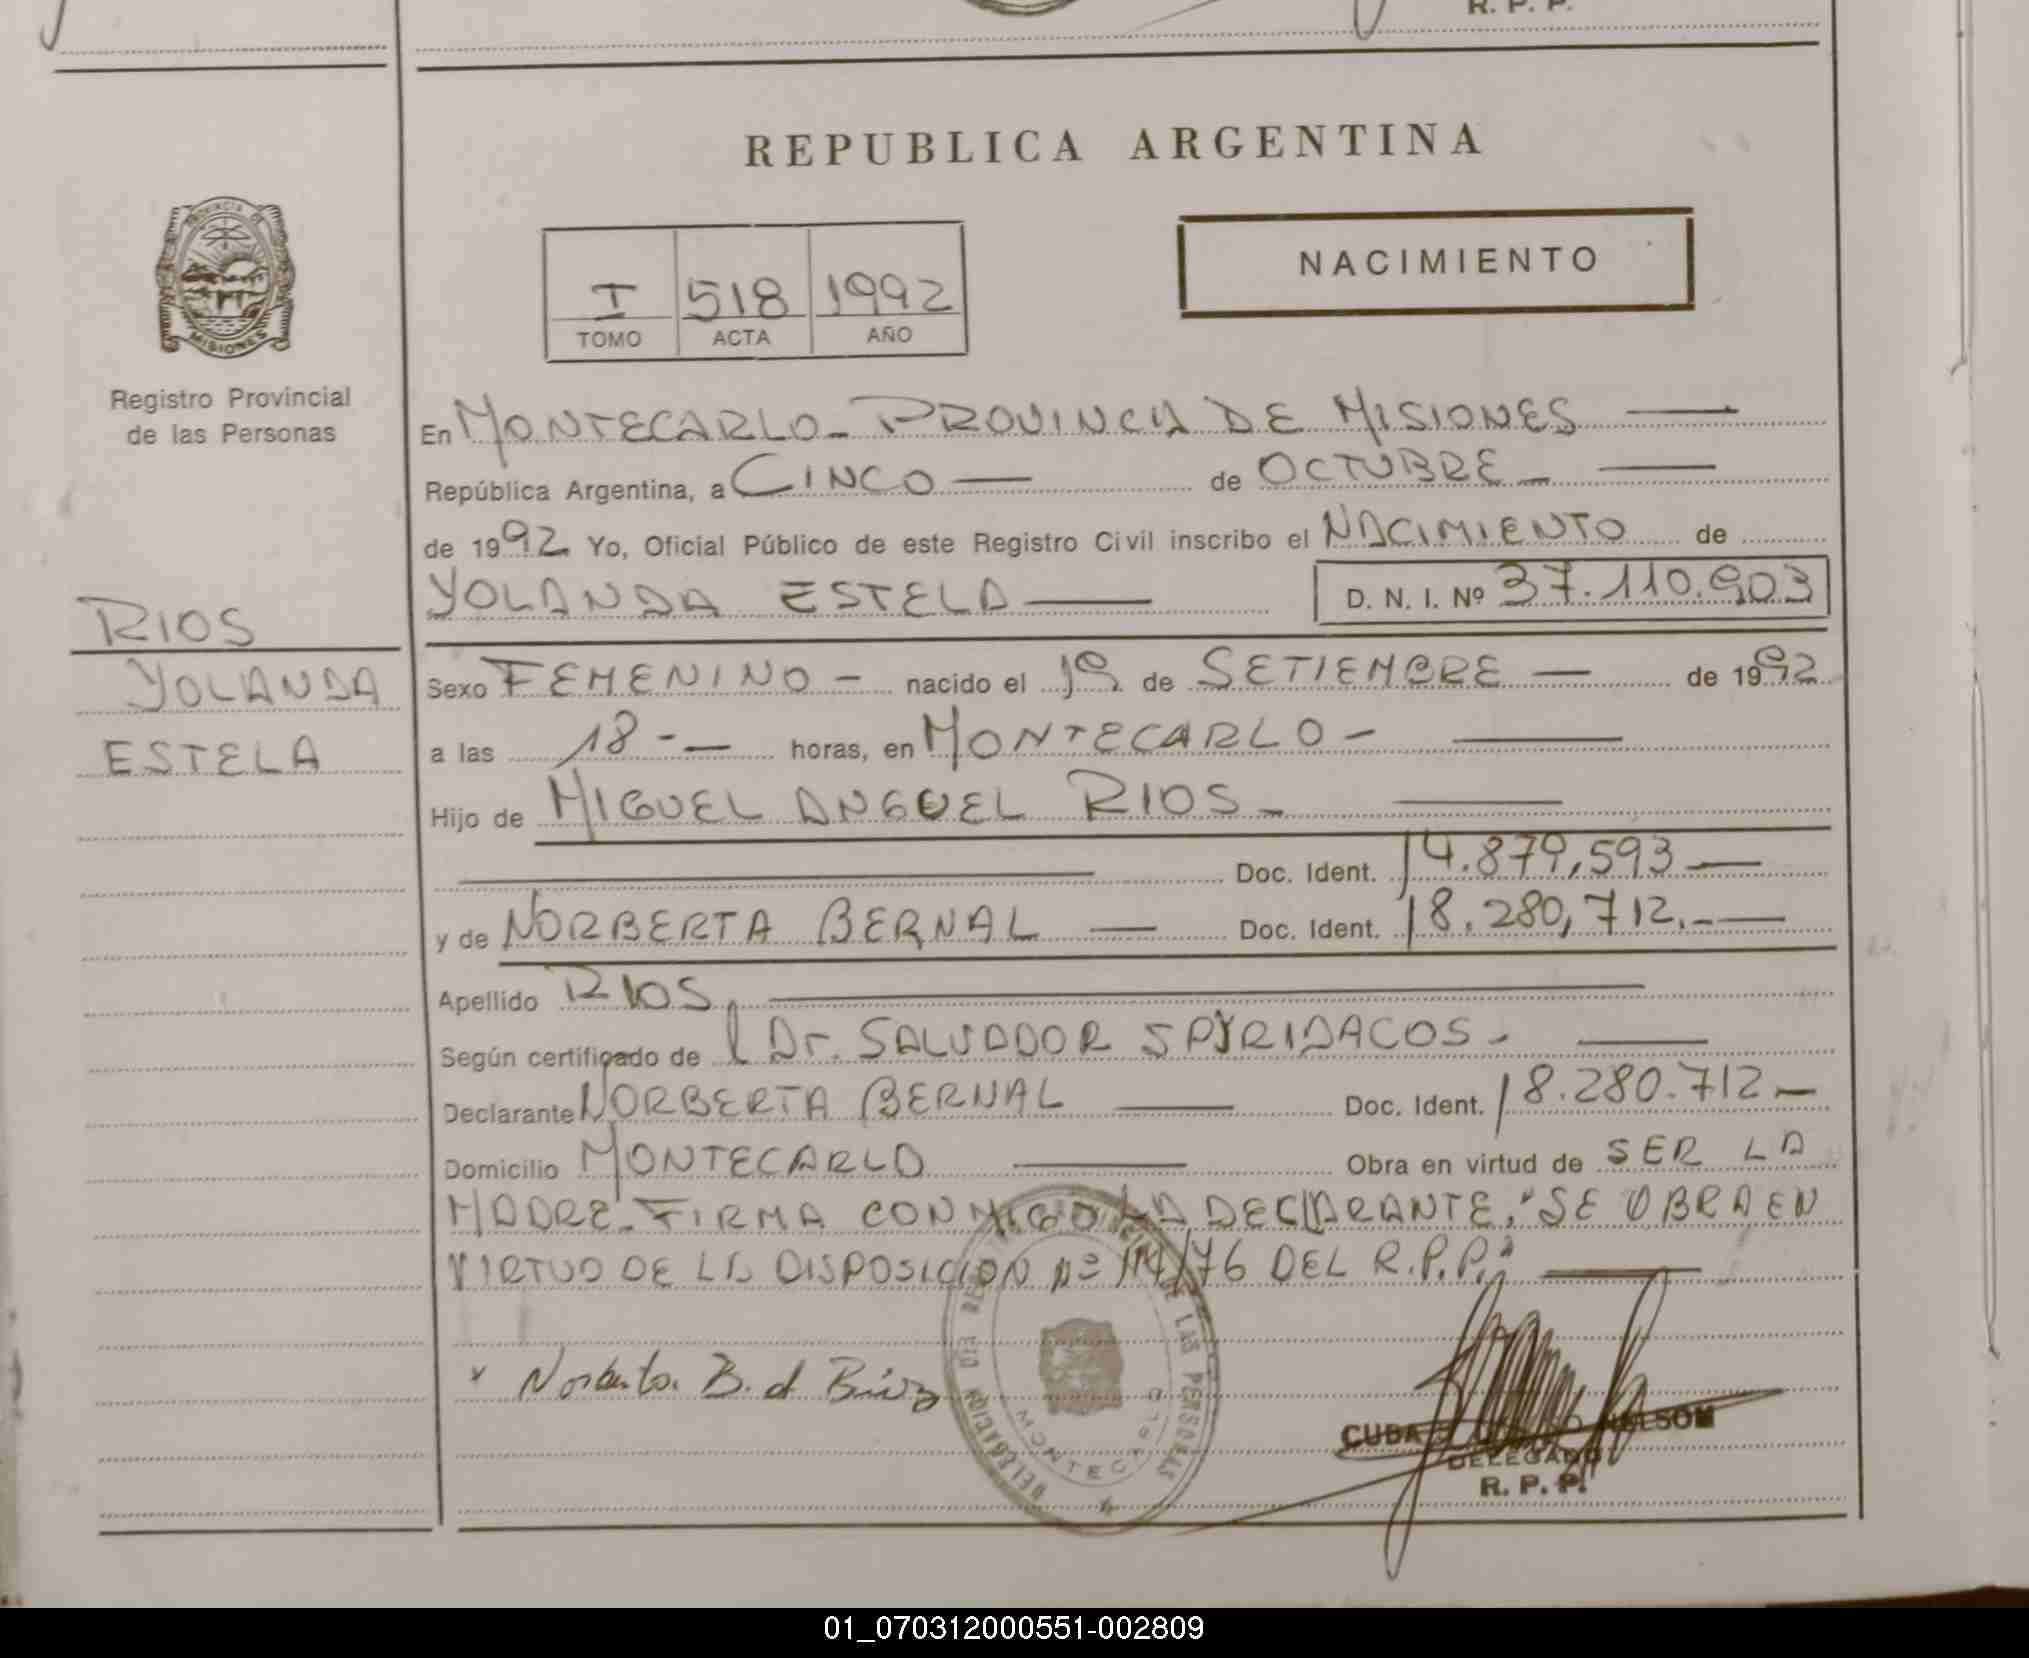 R. P. P.
REPUBLICA ARGENTINA
PROVINCIA DE
MISIONES
Registro Provincial
de las Personas
I 518 1992
TOMO ACTA AÑO
NACIMIENTO
En MONTECARLO - PROVINCIA DE MISIONES
República Argentina, a CINCO de OCTUBRE
de 1992 Yo, Oficial Público de este Registro Civil inscribo el NACIMIENTO de
YOLANDA ESTELA D. N. I. Nº 37.110.903
RIOS
YOLANDA
ESTELA
Sexo FEMENINO - nacido el 19 de SETIEMBRE de 1992
a las 18 - horas, en MONTECARLO -
Hijo de MIGUEL ANGUEL RIOS -
Doc. Ident. 14.879,593
y de NORBERTA BERNAL Doc. Ident. 18.280,712.-
Apellido RIOS.
Según certificado de Dr. SALVADOR SPYRIDACOS -
Declarante NORBERTA BERNAL Doc. Ident. 18.280.712
Domicilio MONTECARLO Obra en virtud de SER LA
MADRE - FIRMA CONMIGO LA DECLARANTE, "SE OBRA EN
VIRTUD DE LA DISPOSICION Nº 114/76 DEL R.P.P."
x Norberta B. d
DELEGACION MONTECARLO
DE LAS PERSONAS
CUBA NELSON
DELEGADO
R. P. P.
01_070312000551-002809